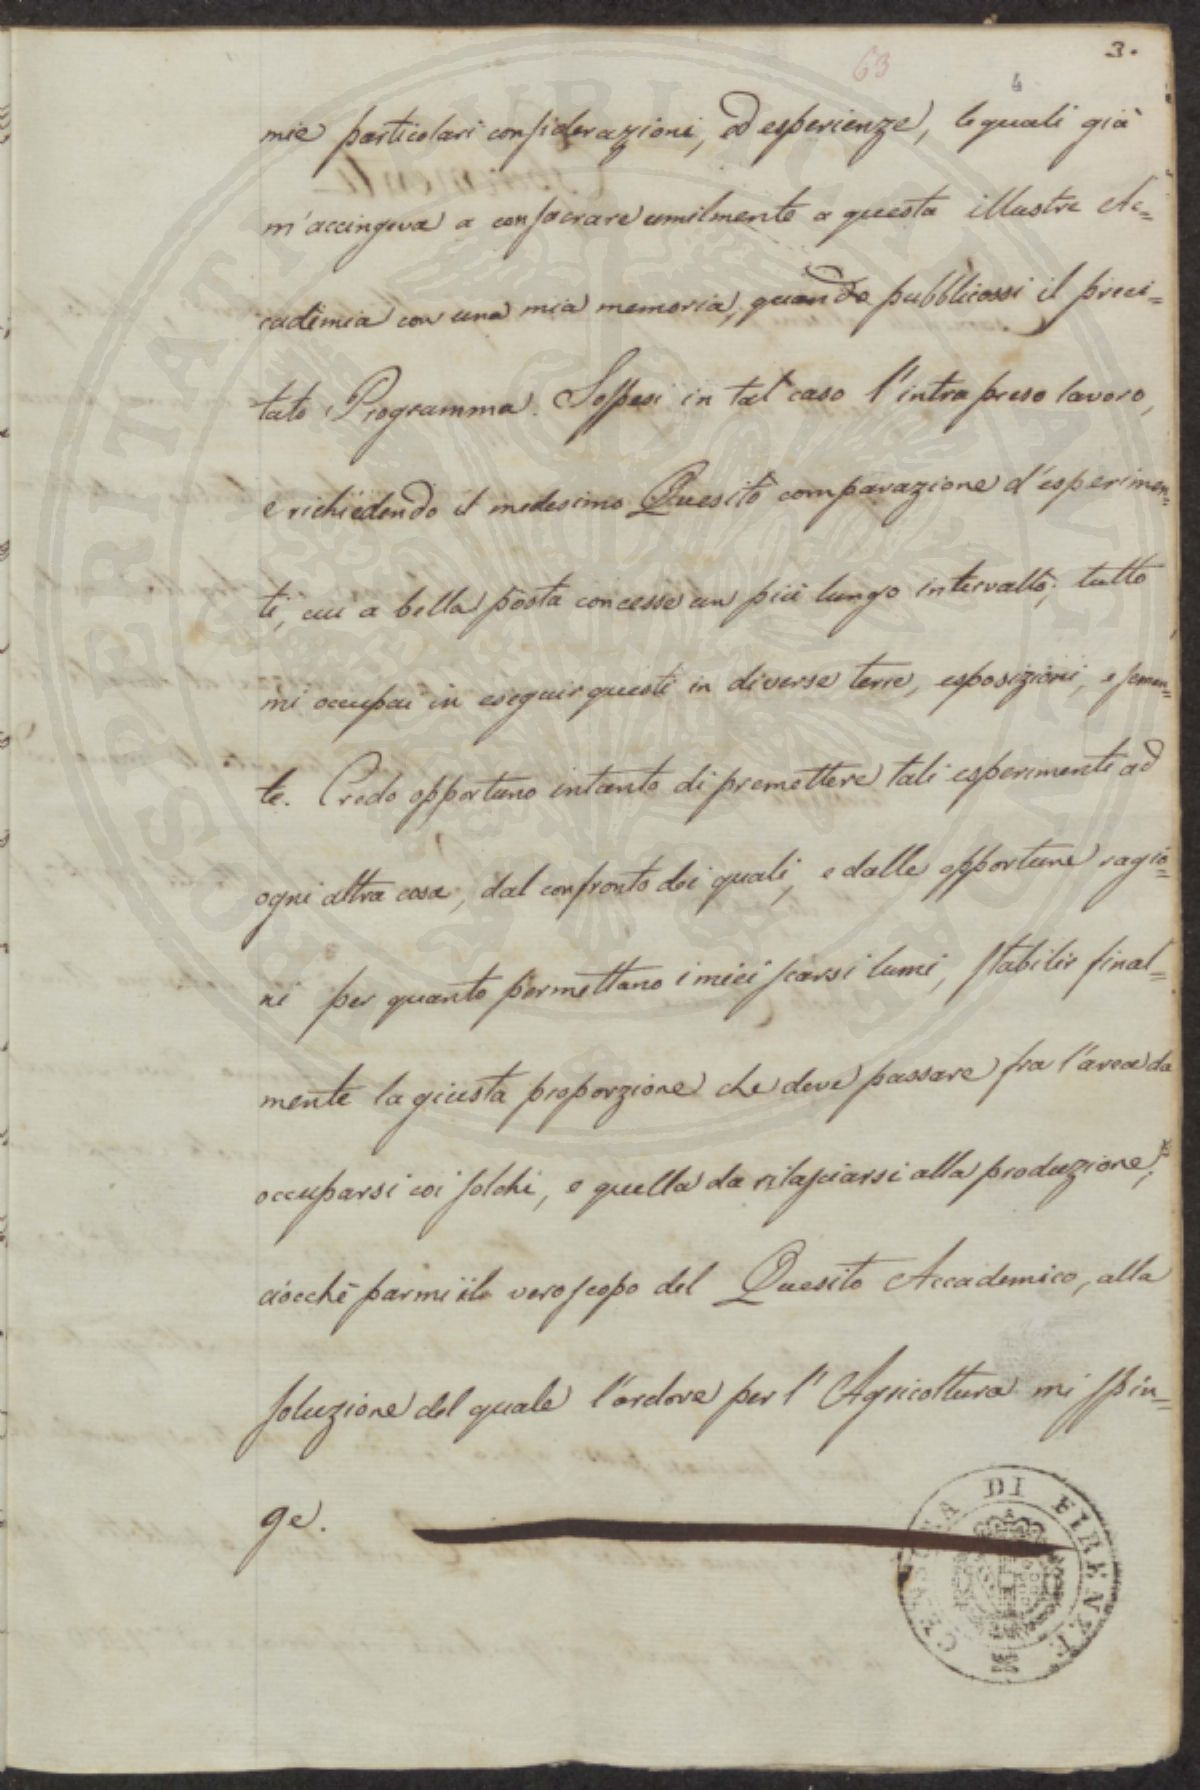 3.
63
4
mie particolari considerazioni, ed esperienze, le quali già
m'accingeva a consacrare umilmente a questa illustre Ac=
cademia con una mia memoria, quando pubblicossi il preci=
tato Programma. Sospesi in tal caso l'intrapreso lavoro,
e richiedendo il medesimo Quesito comparazione d'esperimen=
ti, cui a bella posta concesse un più lungo intervallo; tutto
mi occupai in eseguir questi in diverse terre, esposizioni, e semen=
te. Credo opportuno intanto di premettere tali esperimenti ad
ogni altra cosa, dal confronto dei quali, e dalle opportune ragio=
ni per quanto permettano i miei scarsi lumi, stabilir final=
mente la giusta proporzione che deve passare fra l'area da
occuparsi coi solchi, e quella da rilasciarsi alla produzione;
ciocchè parmi il vero scopo del Quesito Accademico, alla
soluzione del quale l'ardore per l'Agricoltura mi spin=
ge.
CENSURA DI FIRENZE